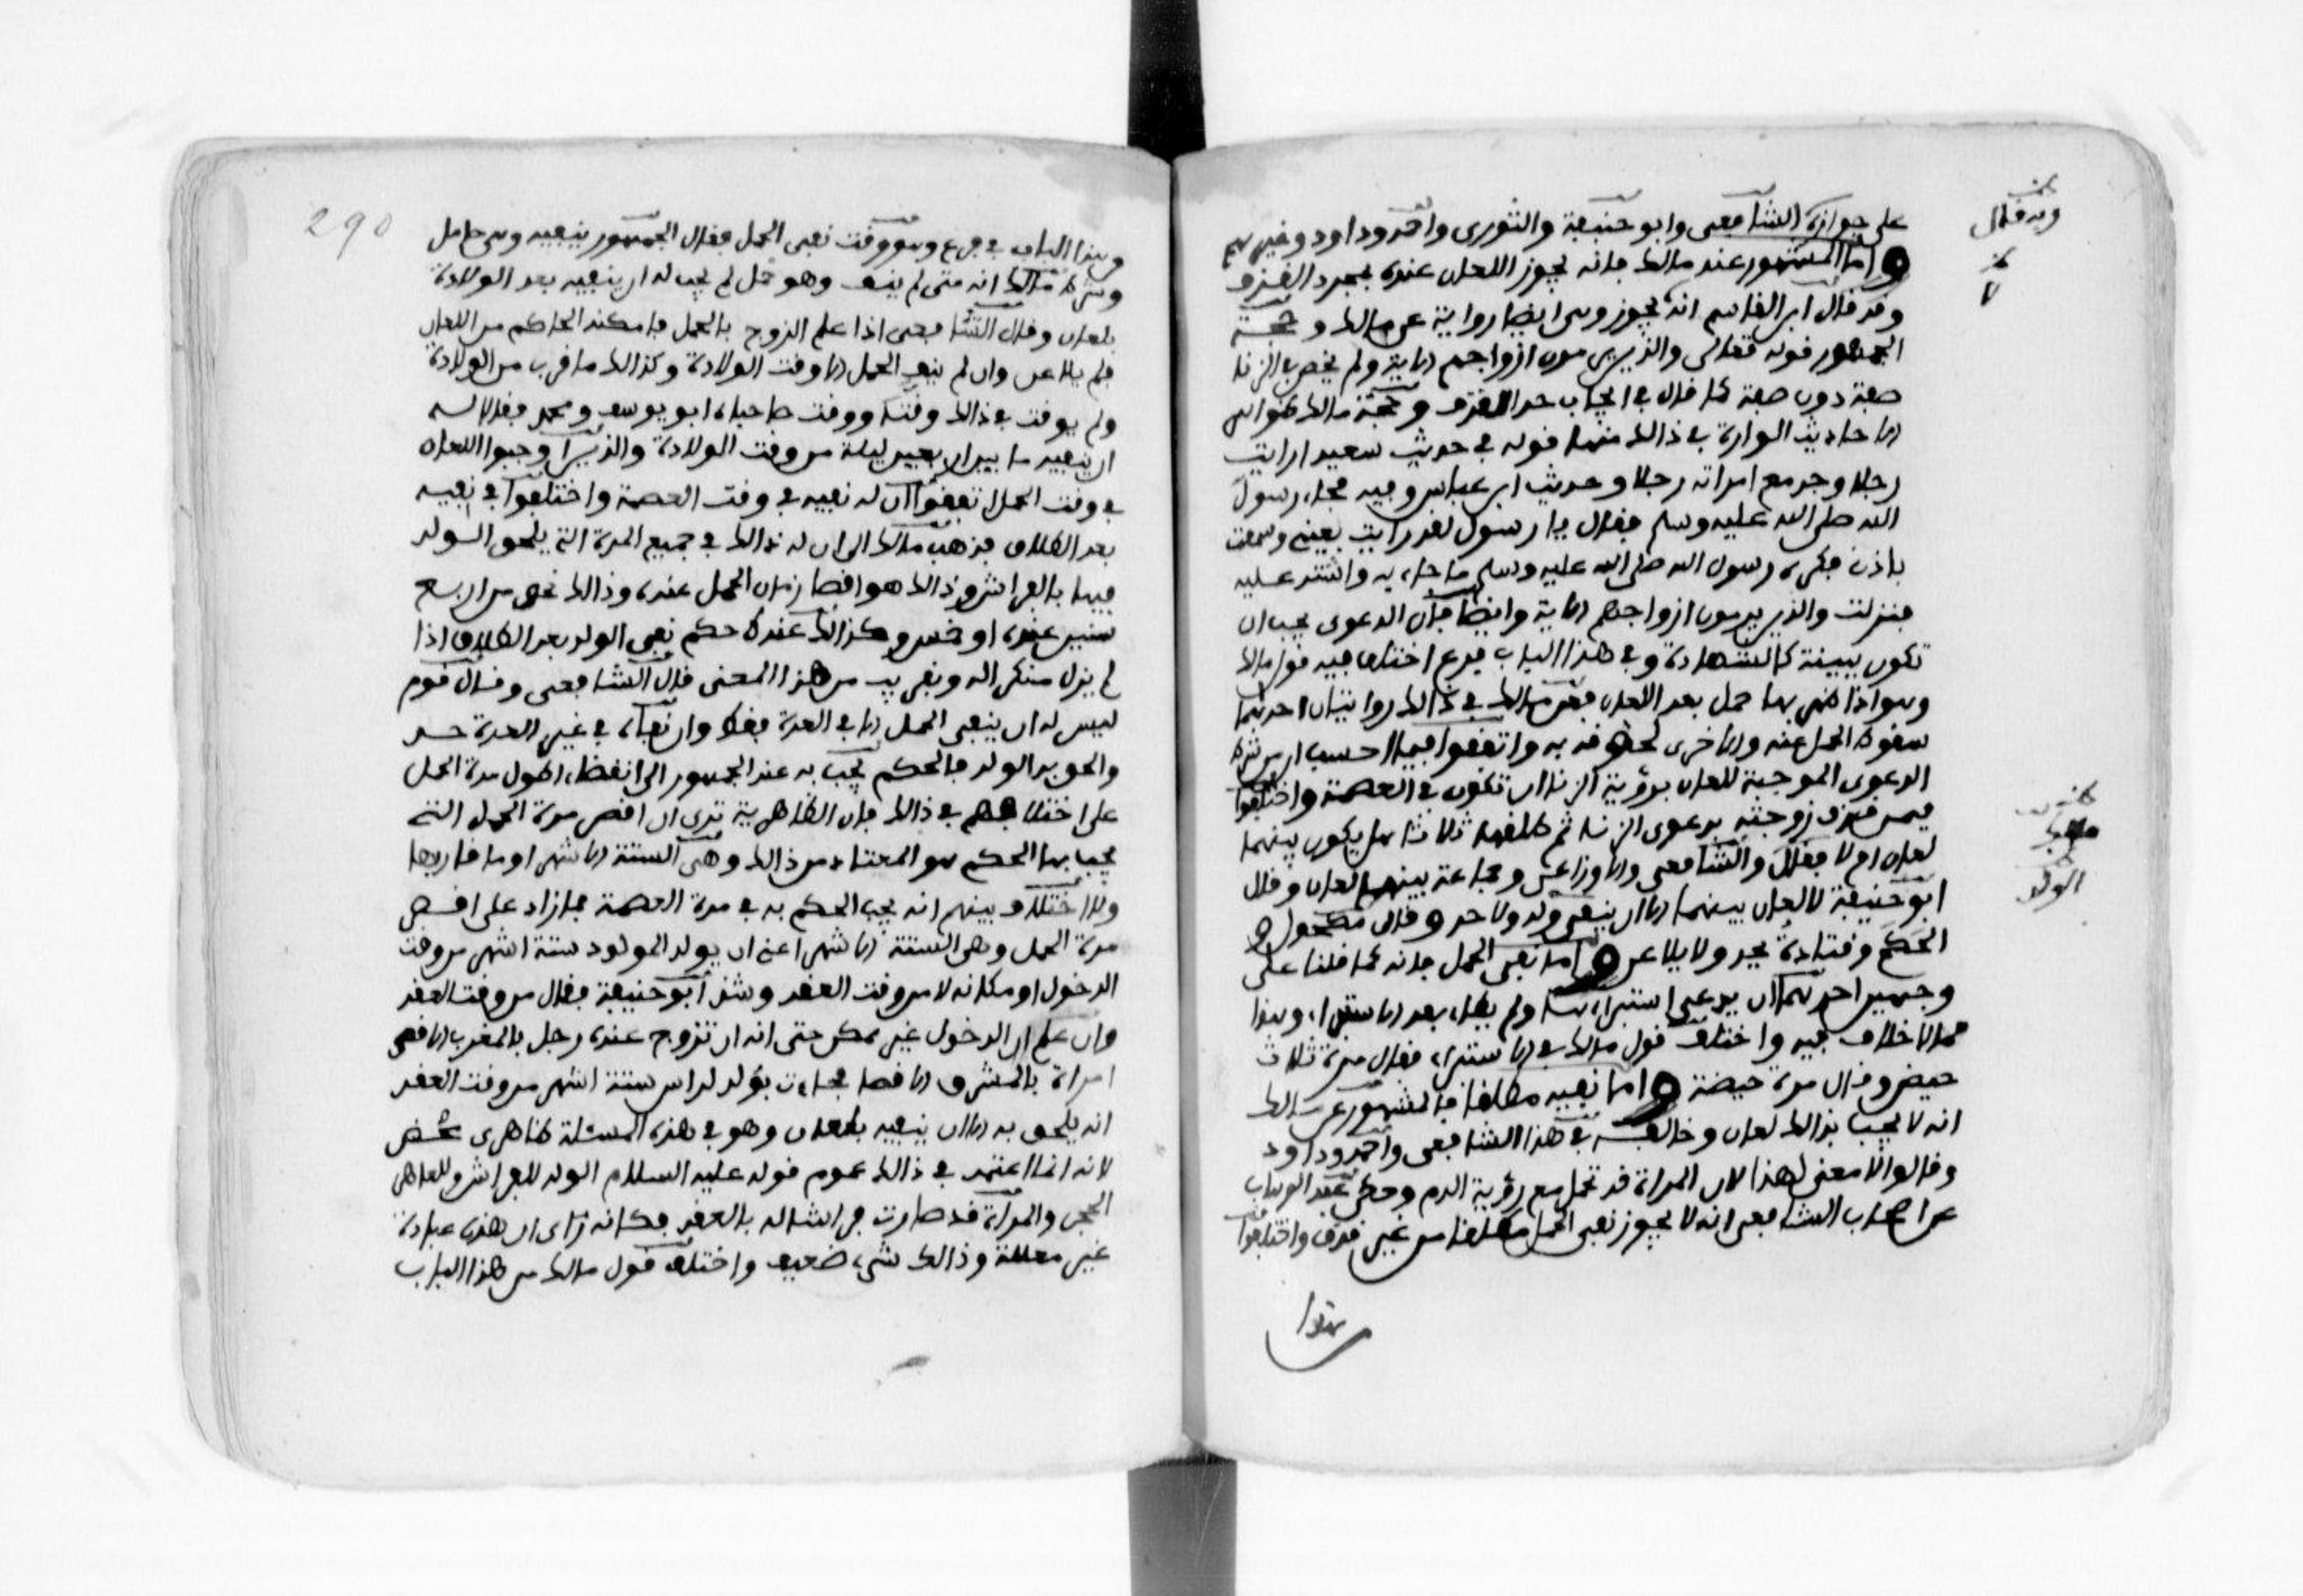 على جوازه الشافعي وابو حنيفة والثوري واحمد وداود وغيرهم
واما المشهور عند مالك فانه يجوز اللعان عنده بمجرد القذف
وقد قال ابن القاسم انه يجوز وهي ايضا رواية عن مالك وحجة
الجمهور قوله تعالى والذين يرمون ازواجهم الاية ولم يخص بالزنا
صفة دون صفة كما قال في ايجاب حد القذف وحجة مالك ظواهر
الاحاديث الواردة في ذالك منها قوله في حديث سعيد ارايت
رجلا وجد مع امراته رجلا وحديث ابن عباس وفيه فجاء رسول
الله صلى الله عليه وسلم فقال يا رسول لقد رايت بعيني وسمعت
باذني فكره رسول الله صلى الله عليه وسلم ما جاء به واشتد عليه
فنزلت والذين يرمون ازواجهم الاية وايضا فان الدعوى يجب ان
تكون ببينة كالشهادة وفي هذا الباب فرع اختلف فيه قول مالك
وهو اذا ظهر بها حمل بعد اللعان فعن مالك في ذالك روايتان احدهما
سقوط الحمل عنه والاخرى لحوقه به واتفقوا فيما احسب ان من شرط
الدعوى الموجبة للعان برؤية الزنا ان تكون في العصمة واختلفوا
فيمن قذف زوجته بدعوى الزنا ثم طلقها ثلاثا هل يكون بينهما
لعان ام لا فقال والشافعي والاوزاعي وجماعة بينهما لعان وقال
ابو حنيفة لا لعان بينهما الا ان ينفي ولد ولا حد وقال مكحول و
الحكم وقتادة يحد ولا يلاعن واما نفي الحمل فانه كما قلنا على
وجهين احدهما ان يدعي استبراءها ولم يطا بعد الاستبراء وهذا
مما لا خلاف فيه واختلف قول مالك في الاستبراء فقال مرة ثلاث
حيض وقال مرة حيضة واما نفيه مطلقا فالمشهور عن مالك
انه لا يجب بذالك لعان وخالفه في هذا الشافعي واحمد وداود
وقالوا لا معنى لهذا لان المراة قد تحمل مع رؤية الدم وحكى عبد الوهاب
عن اصحاب الشافعي انه لا يجوز نفي الحمل مطلقا من غير قذف واختلفوا
من هذا
وبه قال
الولد
290
من هذا الباب في فرع وهو وقت نفي الحمل فقال الجمهور ينفيه وهي حامل
وشرط مالك انه متى لم ينفه وهو حمل لم يجب له ان ينفيه بعد الولادة
بلعان وقال الشافعي اذا علم الزوج بالحمل فامكنه الحاكم من اللعان
فلم يلاعن وان لم ينف الحمل الا وقت الولادة وكذالك ما قرب من الولادة
ولم يوقت في ذالك وقتا ووقت صاحباه ابو يوسف ومحمد فقالا له
ان ينفيه ما بين اربعين ليلة من وقت الولادة والذين اوجبوا اللعان
في وقت الحمل اتفقوا ان له نفيه في وقت العصمة واختلفوا في نفيه
بعد الطلاق فذهب مالك الى ان له ذالك في جميع المدة التي يلحق الولد
فيها بالفراش وذالك هو اقصا زمان الحمل عنده وذالك نحو من اربع
سنين عنده او خمس وكذالك عنده حكم نفي الولد بعد الطلاق اذا
لم يزل منكرا له وبقريب من هذا المعنى قال الشافعي وقال قوم
ليس له ان ينفي الحمل الا في العدة فقط وان نفاه في غير العدة حد
والحق به الولد فالحكم يجب به عند الجمهور الى انقضاء اطول مدة الحمل
على اختلافهم في ذالك فان الظاهرية ترى ان اقصر مدة الحمل التي
يجب بها الحكم هو المعتاد من ذالك وهي الستة الاشهر او ما قاربها
ولا اختلاف بينهم انه يجب الحكم به في مدة العصمة فما زاد على اقصر
مدة الحمل وهي الستة الاشهر اعني ان يولد المولود ستة اشهر من وقت
الدخول او مكانه لا من وقت العقد وشذ ابو حنيفة فقال من وقت العقد
وان علم ان الدخول غير ممكن حتى انه ان تزوج عنده رجل بالمغرب الاقصى
امراة بالمشرق الاقصا فجاءت بولد لراس ستة اشهر من وقت العقد
انه يلحق به الا ان ينفيه بلعان وهو في هذه المسئلة ظاهري محض
لانه انما اعتمد في ذالك عموم قوله عليه السلام الولد للفراش وللعاهر
الحجر والمراة قد صارت فراشا له بالعقد فكانه راى ان هذه عبادة
غير معللة وذالك شيء ضعيف واختلف قول مالك من هذا الباب